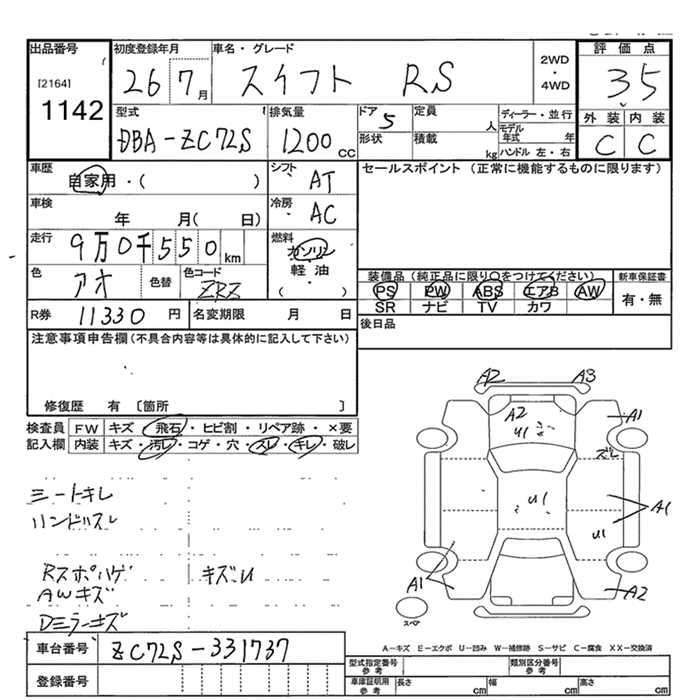 出品番号
[2164]
1142
初度登録年月
26 7 月
車名・グレード
スイフト RS
2WD
・
4WD
評価点
3.5
外装 内装
C C
型式
DBA-ZC72S
排気量
1200 CC
ドア 5
形状
定員 人
積載 kg
ディーラー・並行
モデル年式 年
ハンドル 左・右
車歴
自家用・( )
シフト
AT
車検
年 月( 日)
冷房
AC
走行
9万0千550km
燃料
ガソリン
軽油
・( )
色
アオ
色替
色コード
ZRZ
R券 11330 円
名変期限 月 日
セールスポイント(正常に機能するものに限ります)
装備品(純正品に限り○をつけてください)
PS PW ABS エアB AW
SR ナビ TV カワ
新車保証書
有・無
後日品
注意事項申告欄(不具合内容等は具体的に記入して下さい)
修復歴 有 〔箇所 〕
検査員記入欄
FW キズ・飛石・ヒビ割・リペア跡・×要
内装 キズ・汚レ・コゲ・穴・スレ・キレ・破レ
シートキレ
ハンドルスレ
Rスポハゲ キズU
AWキズ
Dミラーキズ
A2 A3
A2 U1
A1
ズレ
U1
A1
U1
A1
A2
スペア
A-キズ E-エクボ U-凹み W-補修跡 S-サビ C-腐食 XX-交換済
車台番号 ZC72S-331737
登録番号
型式指定番号 参考
類別区分番号 参考
車庫証明用 参考
長さ cm 幅 cm 高さ cm